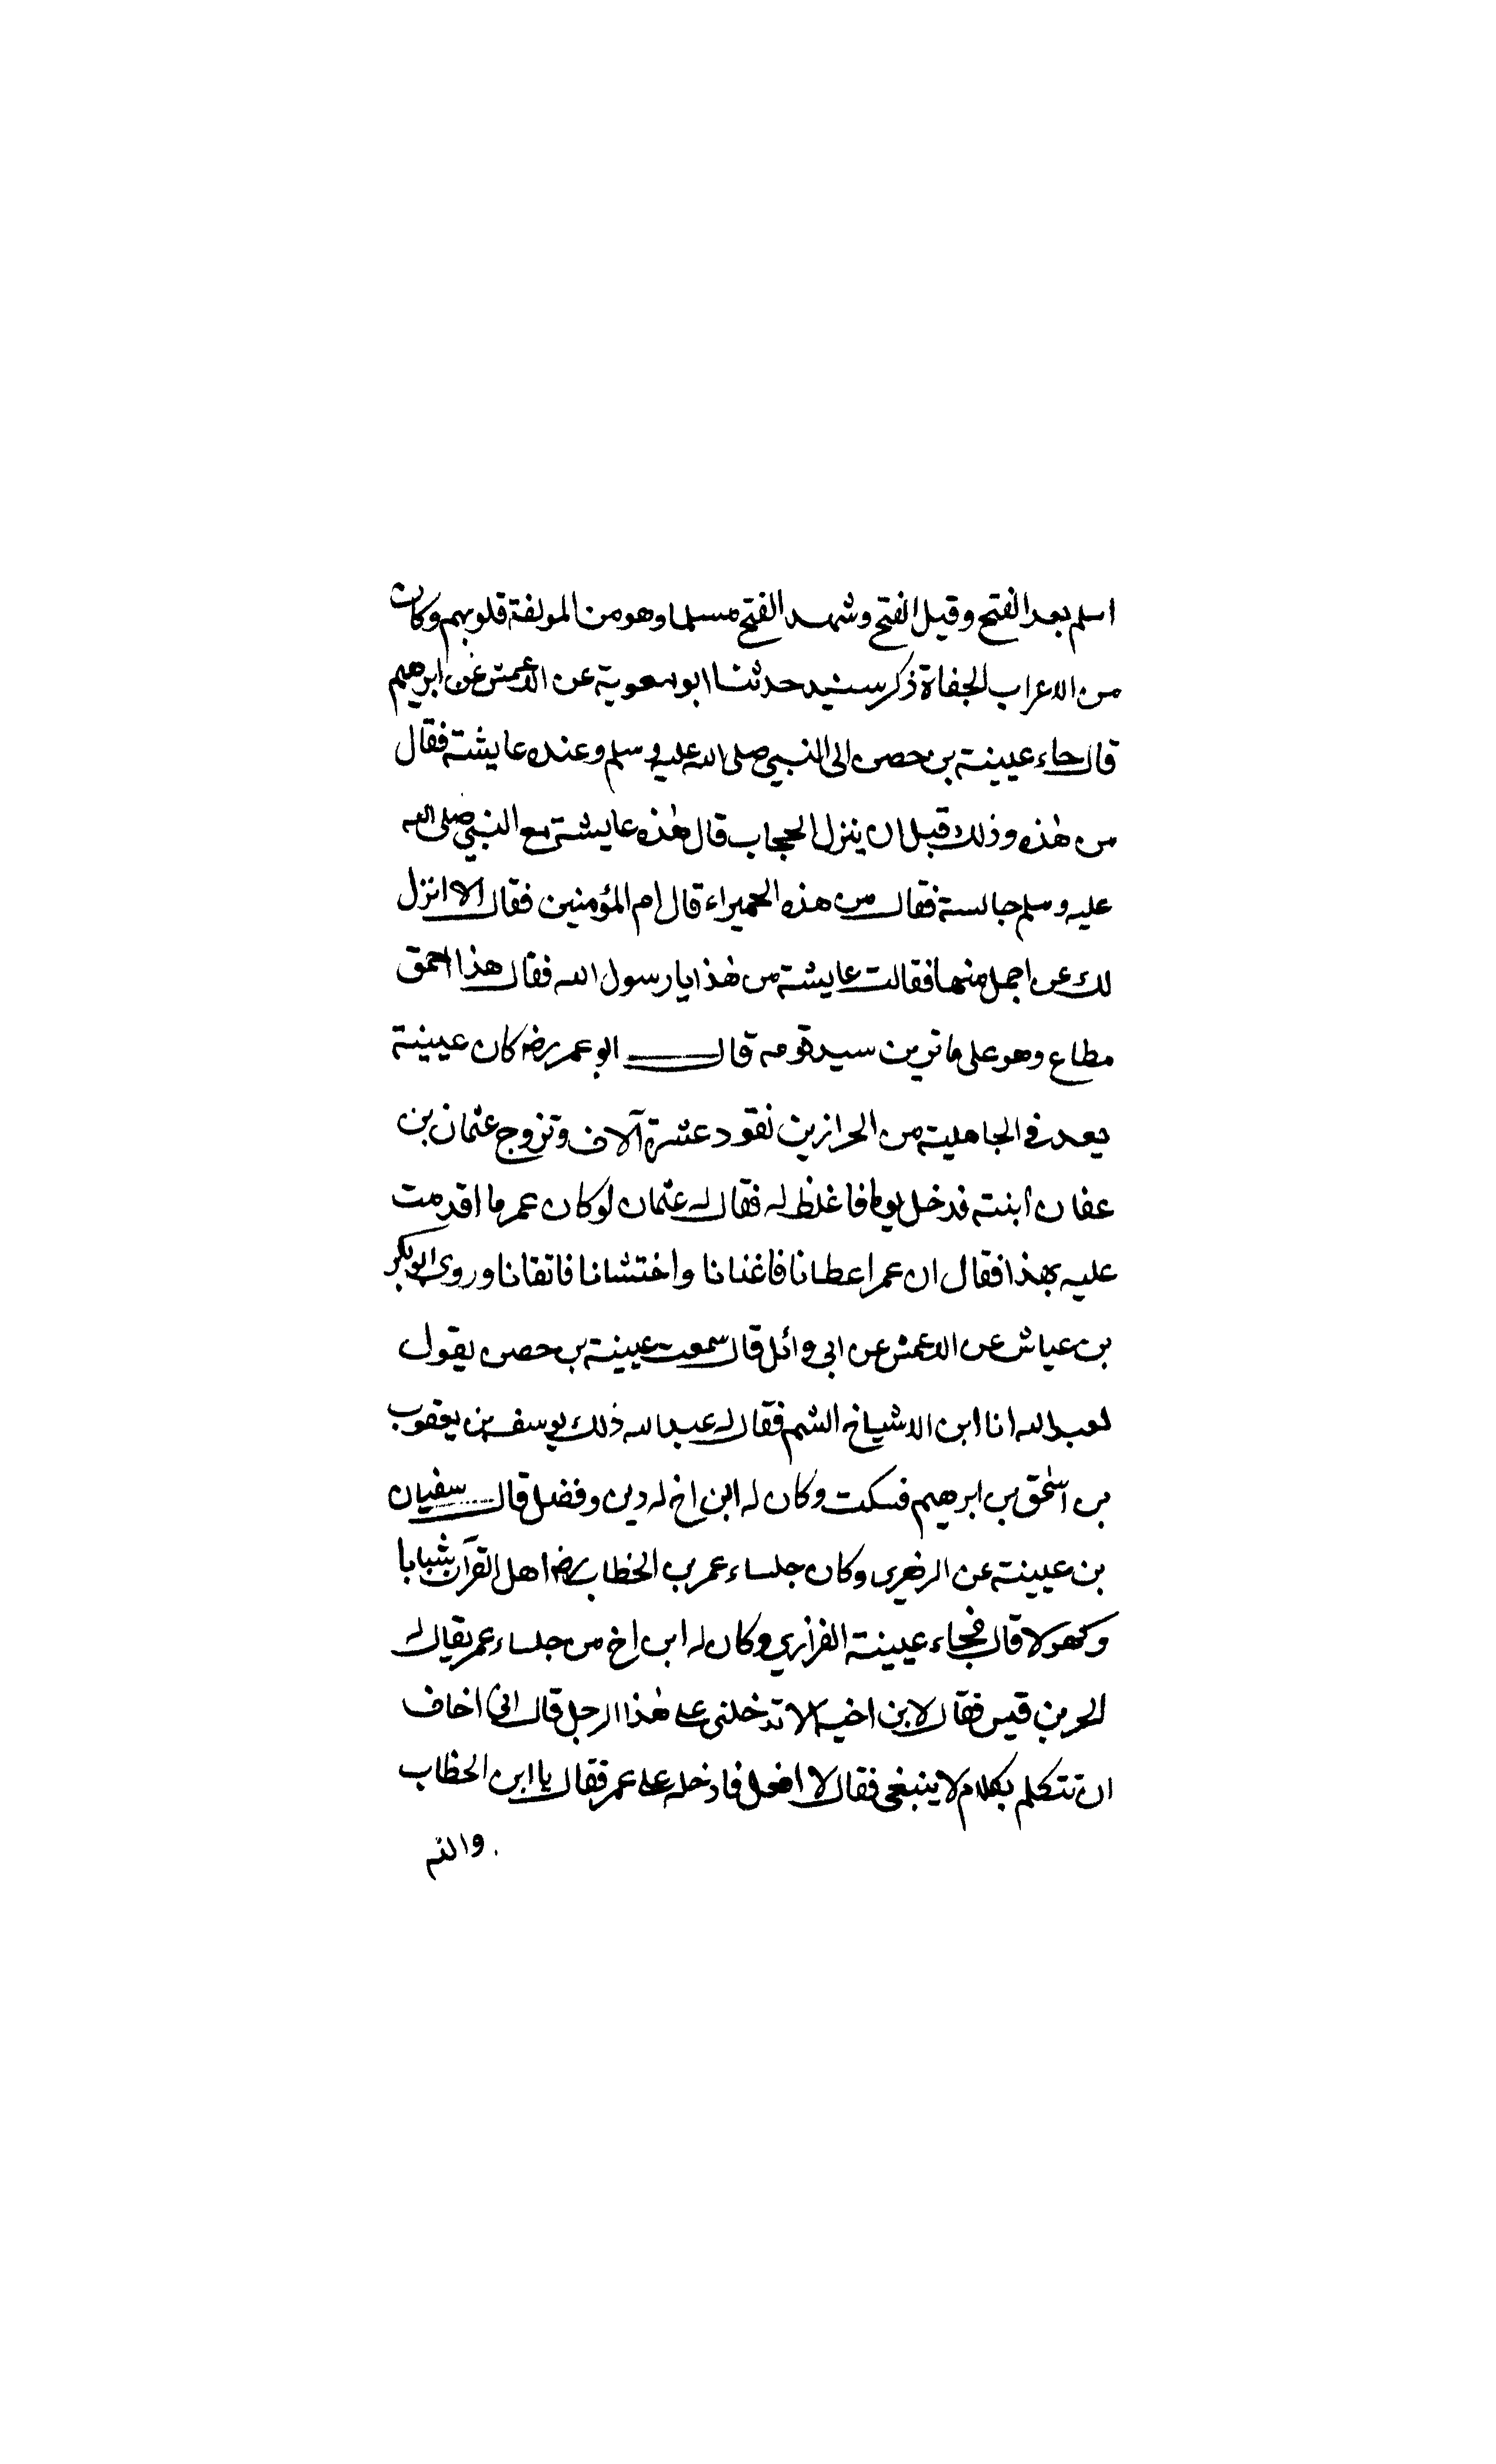 اسلم بعد الفتح وقيل الفتح وشهد الفتح مسلما وهو من المولفة قلوبهم وكان
من الاعراب الجفاة ذكر سنيد حدثنا ابو معوية عن الاعمش عن ابرهيم
قال جاء عيينة بن حصن الى النبي صلى الله عليه وسلم وعنده عايشة فقال
من هذه وذلك قبل ان ينزل الحجاب قال هذه عايشة مع النبي صلى الله
عليه وسلم جالسة فقال من هذه الحميراء قال ام المؤمنين فقال الا انزل
لك عن اجمل منها فقالت عايشة من هذا يا رسول الله فقال هذا احمق
مطاع وهو على ما ترين سيد قومه قال ابو عمر رضـ كان عيينة
يعد في الجاهلية من الجرارين نقود عشرة آلاف وتزوج عثمان بن
عفان ابنته فدخل يوما فاغلظ له فقال له عثمان لو كان عمر ما اقدمت
عليه بهذا فقال ان عمر اعطانا فاغنانا واختشانا فاتقانا وروى ابو بكر
بن عياش عن الاعمش عن ابي وائل قال سمعت عيينة بن حصن يقول
لعبد الله انا ابن الاشياخ الشم فقال له عبد الله ذلك يوسف بن يعقوب
بن اسحق بن ابرهيم فسكت وكان له ابن اخ له دين وفضل قال سفيان
بن عيينة عن الزهري وكان جلساء عمر بن الخطاب رضـ اهل القرآن شبابا
وكهولا قال فجاء عيينة الفزاري وكان له ابن اخ من جلساء عمر يقال له
الحر بن قيس فقال لابن اخيه الا تدخلني على هذا الرجل قال اني اخاف
ان تتكلم بكلام لا ينبغي فقال لا افعل فادخله على عمر فقال يا ابن الخطاب
والله